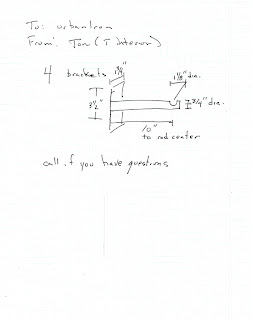 To: urbaniron
From: Tom (T Interior)
4 brackets
1 1/8" dia.
3 1/2"
3/4" dia.
10"
to rod center
call if you have questions